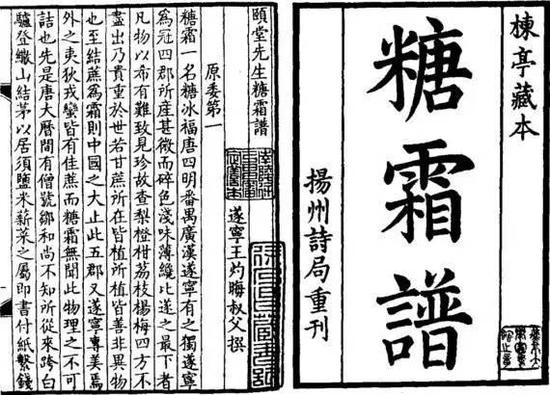 楝亭藏本
糖霜譜
揚州詩局重刊
頤堂先生糖霜譜
遂寧王灼晦叔父撰
原委第一
糖霜一名糖冰福唐四明番禺廣漢遂寧有之獨遂寧
爲冠四郡所産甚微而碎色淺味薄纔比遂之最下者
凡物以希有難致見珍故查梨橙柑荔枝楊梅四方不
盡出乃貴重於世若甘蔗所在皆植所植皆善非異物
也至結蔗爲霜則中國之大止此五郡又遂寧專美焉
外之夷狄戎蠻皆有佳蔗而糖霜無聞此物理之不可
詰也先是唐大曆間有僧號鄒和尚不知所從來跨白
驢登繖山結茅以居須鹽米薪菜之屬即書付紙繫錢